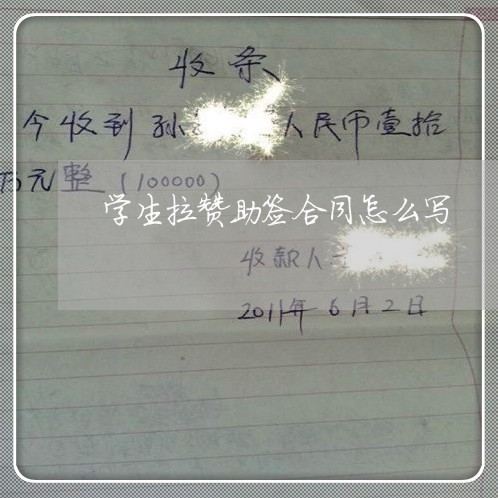 收条
今收到孙 人民币壹拾
万元整（100000）
学生拉赞助签合同怎么写
收款人
2011年6月2日